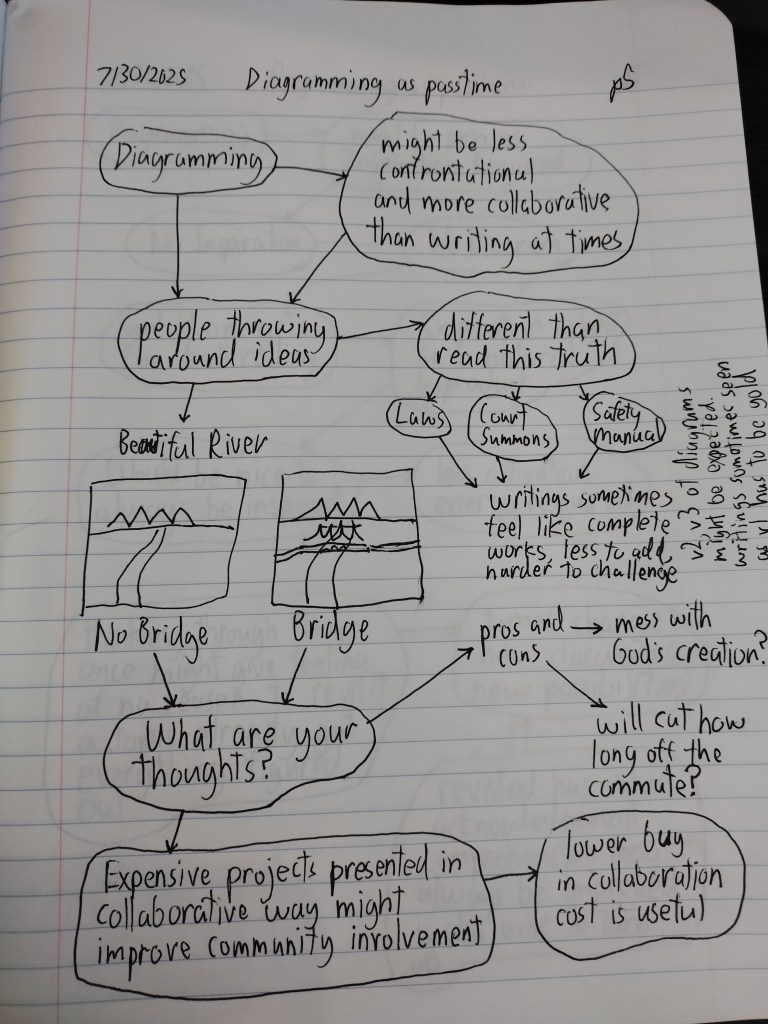 7/30/2025 Diagramming as passtime p5
Diagramming
might be less
confrontational
and more collaborative
than writing at times
people throwing
around ideas
different than
read this truth
Laws
Court
Summons
Safety
Manual
writings sometimes
feel like complete
works, less to add,
harder to challenge
v2 v3 of diagrams
might be expected.
writings sometimes seen
as v1 has to be gold
Beautiful River
No Bridge
Bridge
pros and
cons
mess with
God's creation?
will cut how
long off the
commute?
What are your
thoughts?
Expensive projects presented in
collaborative way might
improve community involvement
lower buy
in collaboration
cost is useful